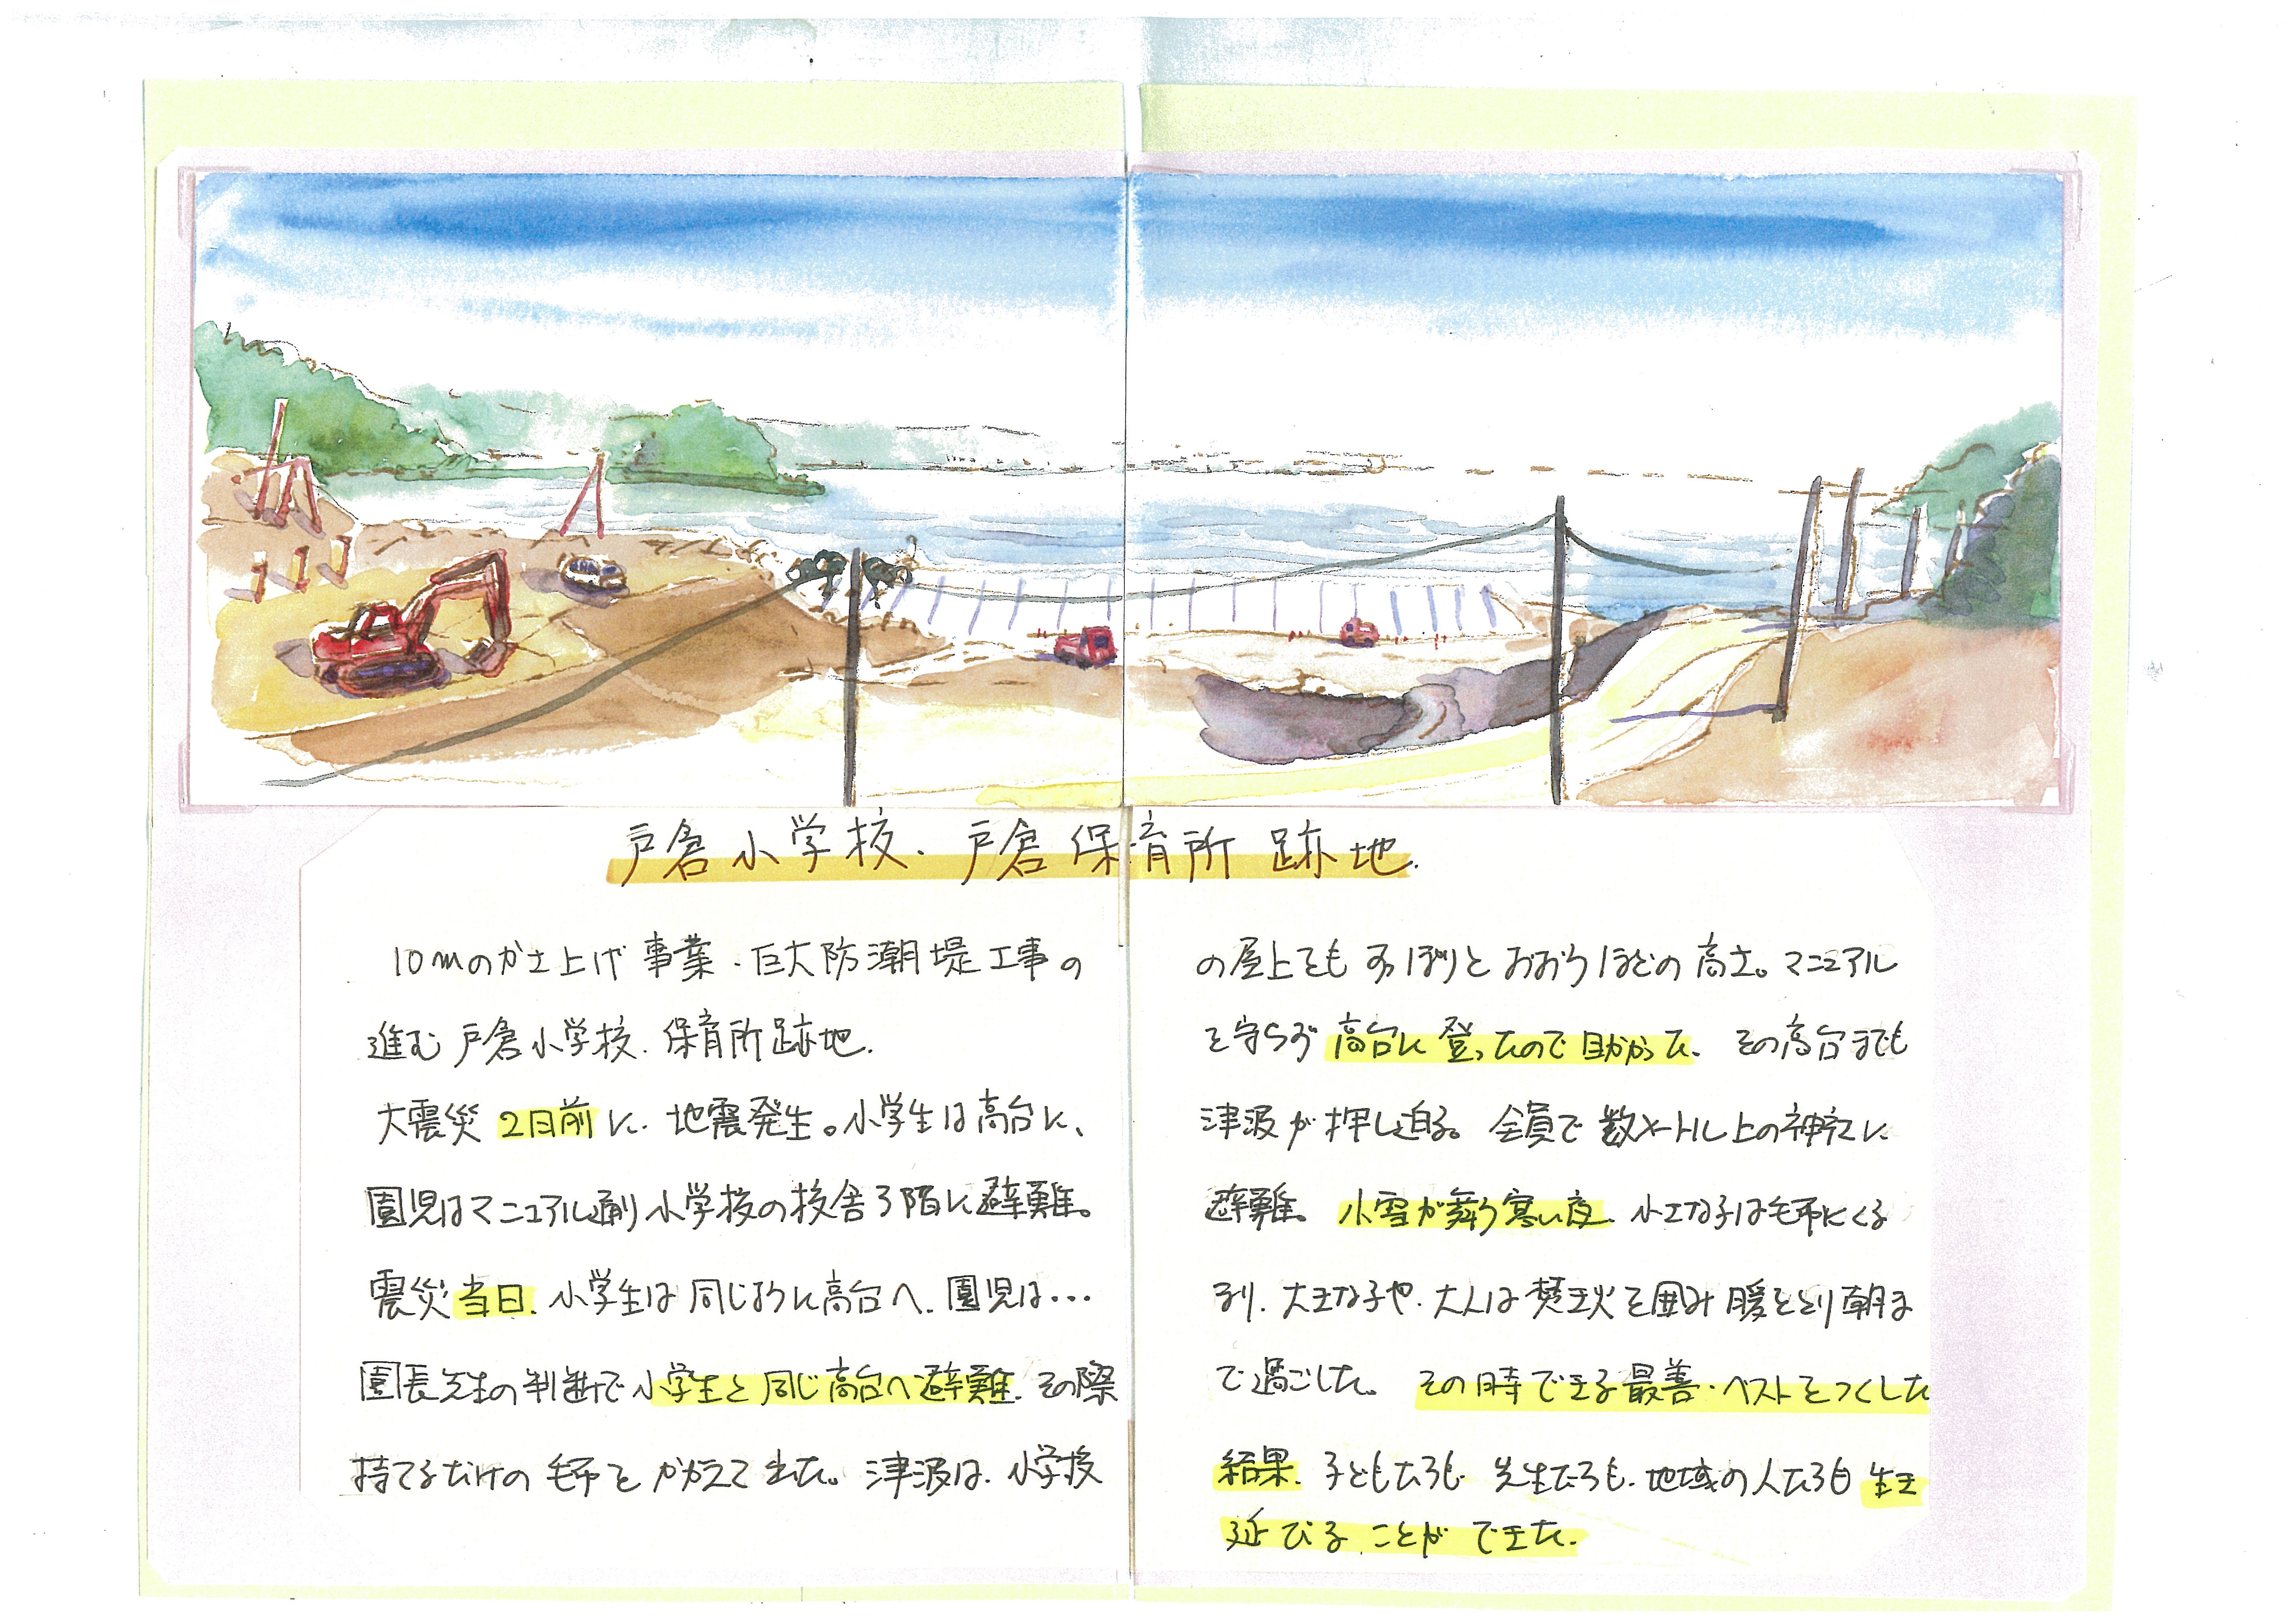 戸倉小学校、戸倉保育所 跡地.
10mのかさ上げ事業・巨大防潮堤工事の
進む戸倉小学校、保育所跡地.
大震災 2日前に、地震発生。小学生は高台に、
園児はマニュアル通り小学校の校舎3階に避難。
震災当日、小学生は同じように高台へ、園児は…
園長先生の判断で小学生と同じ高台へ避難、その際
持てるだけの毛布をかかえて出た。津波は、小学校
の屋上をもすっぽりとおおうほどの高さ。マニュアル
を守らず高台に登ったので助かった、その高台までも
津波が押し迫る。全員で数メートル上の神社に
避難。小雪が舞う寒い夜、小さな子は毛布にくる
まり、大きな子や、大人は焚き火を囲み暖をとり朝ま
で過ごした。その時できる最善・ベストをつくした
結果、子どもたちも、先生たちも、地域の人たちも生き
延びることができた.